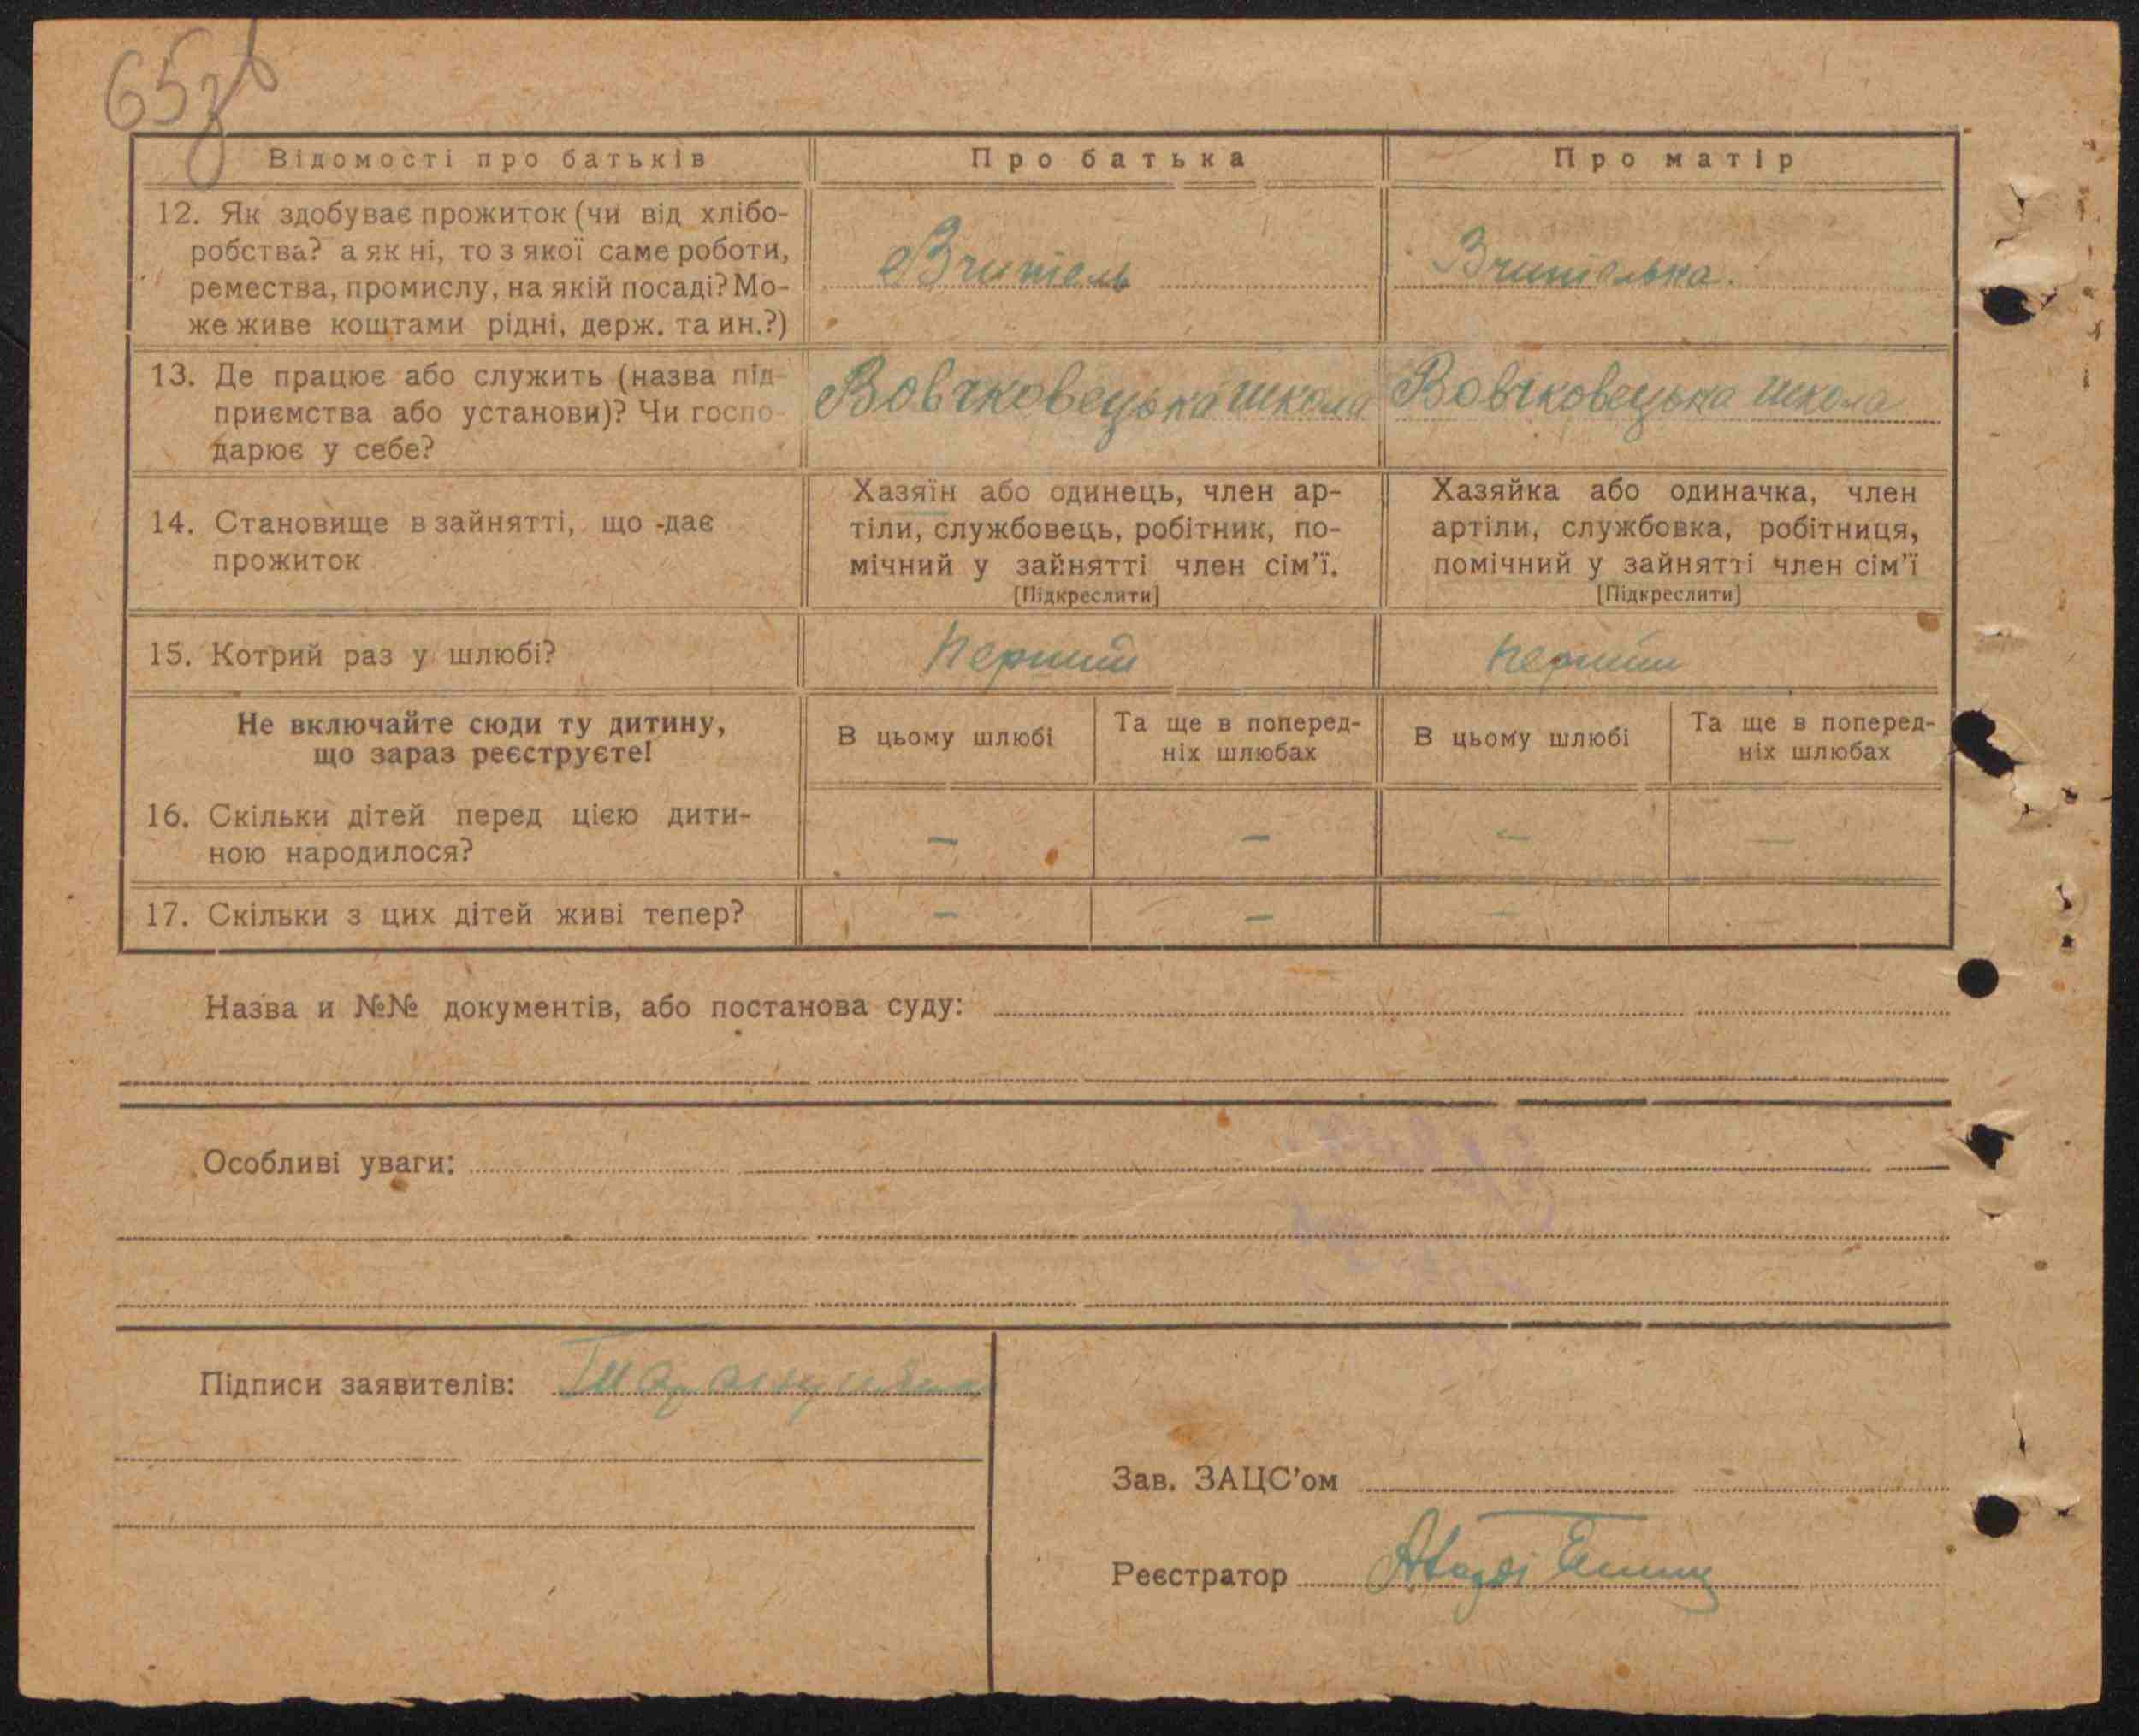 65зв
Відомості про батьків
Про батька
Про матір
12. Як здобуває прожиток (чи від хлібо-
робства? а як ні, то з якої саме роботи,
ремества, промислу, на якій посаді? Мо-
же живе коштами рідні, держ. та ин.?)
Вчитель
Вчителька.
13. Де працює або служить (назва під-
приємства або установи)? Чи госпо-
дарює у себе?
Вовчковецька школа
Вовчковецька школа
14. Становище в зайнятті, що -дає
прожиток
Хазяїн або одинець, член ар-
тіли, службовець, робітник, по-
мічний у зайнятті член сім'ї.
[Підкреслити]
Хазяйка або одиначка, член
артіли, службовка, робітниця,
помічний у зайнятті член сім'ї
[Підкреслити]
15. Котрий раз у шлюбі?
перший
перший
Не включайте сюди ту дитину,
що зараз реєструєте!
В цьому шлюбі
Та ще в поперед-
ніх шлюбах
В цьому шлюбі
Та ще в поперед-
ніх шлюбах
16. Скільки дітей перед цією дити-
ною народилося?
– – – –
17. Скільки з цих дітей живі тепер?
– – – –
Назва и №№ документів, або постанова суду:
Особливі уваги:
Підписи заявителів:
Зав. ЗАЦС'ом
Реєстратор